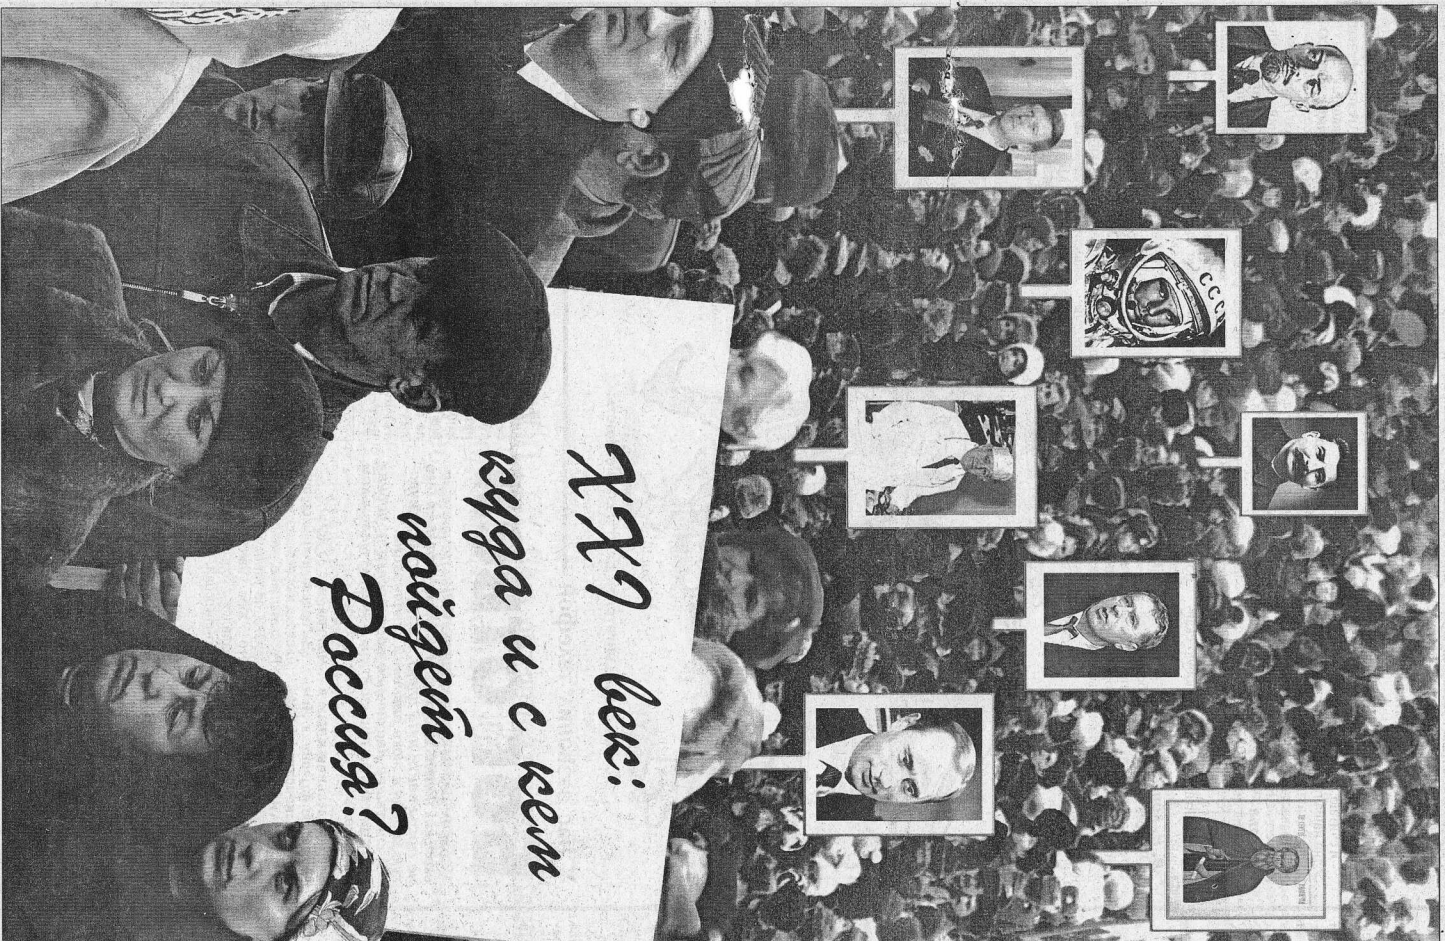 XXI век:
куда и с кем
пойдет
Россия?
СССР